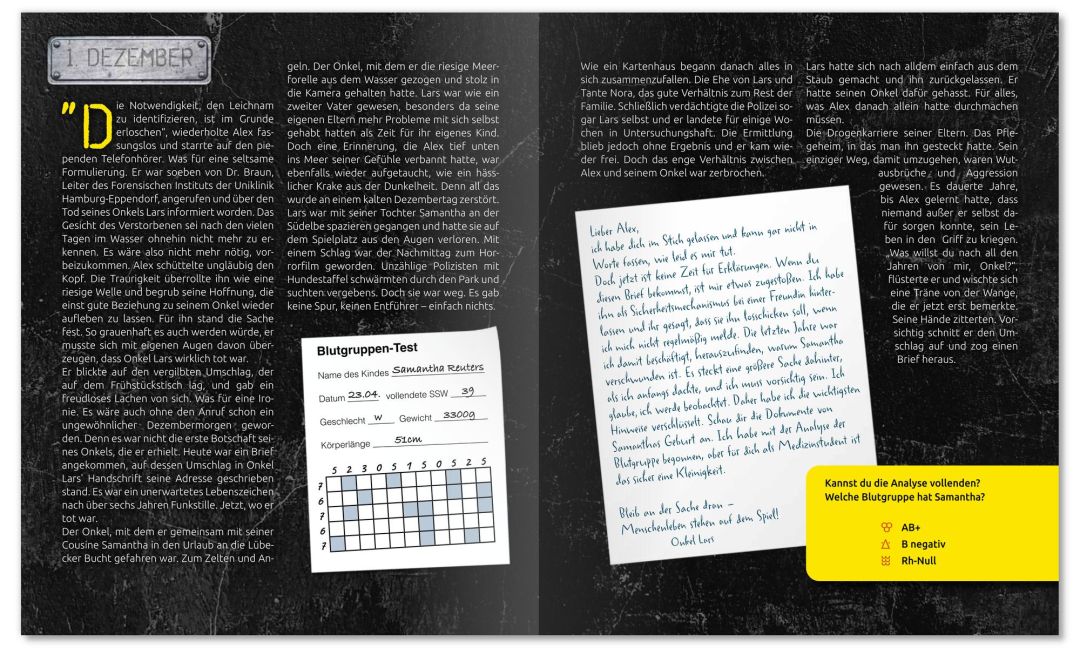 1. DEZEMBER
"Die Notwendigkeit, den Leichnam
zu identifizieren, ist im Grunde
erloschen", wiederholte Alex fas-
sungslos und starrte auf den pie-
penden Telefonhörer. Was für eine seltsame
Formulierung. Er war soeben von Dr. Braun,
Leiter des Forensischen Instituts der Uniklinik
Hamburg-Eppendorf, angerufen und über den
Tod seines Onkels Lars informiert worden. Das
Gesicht des Verstorbenen sei nach den vielen
Tagen im Wasser ohnehin nicht mehr zu er-
kennen. Es wäre also nicht mehr nötig, vor-
beizukommen. Alex schüttelte ungläubig den
Kopf. Die Traurigkeit überrollte ihn wie eine
riesige Welle und begrub seine Hoffnung, die
einst gute Beziehung zu seinem Onkel wieder
aufleben zu lassen. Für ihn stand die Sache
fest. So grauenhaft es auch werden würde, er
musste sich mit eigenen Augen davon über-
zeugen, dass Onkel Lars wirklich tot war.
Er blickte auf den vergilbten Umschlag, der
auf dem Frühstückstisch lag, und gab ein
freudloses Lachen von sich. Was für eine Iro-
nie. Es wäre auch ohne den Anruf schon ein
ungewöhnlicher Dezembermorgen gewor-
den. Denn es war nicht die erste Botschaft sei-
nes Onkels, die er erhielt. Heute war ein Brief
angekommen, auf dessen Umschlag in Onkel
Lars' Handschrift seine Adresse geschrieben
stand. Es war ein unerwartetes Lebenszeichen
nach über sechs Jahren Funkstille. Jetzt, wo er
tot war.
Der Onkel, mit dem er gemeinsam mit seiner
Cousine Samantha in den Urlaub an die Lübe-
cker Bucht gefahren war. Zum Zelten und An-
geln. Der Onkel, mit dem er die riesige Meer-
forelle aus dem Wasser gezogen und stolz in
die Kamera gehalten hatte. Lars war wie ein
zweiter Vater gewesen, besonders da seine
eigenen Eltern mehr Probleme mit sich selbst
gehabt hatten als Zeit für ihr eigenes Kind.
Doch eine Erinnerung, die Alex tief unten
ins Meer seiner Gefühle verbannt hatte, war
ebenfalls wieder aufgetaucht, wie ein häss-
licher Krake aus der Dunkelheit. Denn all das
wurde an einem kalten Dezembertag zerstört.
Lars war mit seiner Tochter Samantha an der
Südelbe spazieren gegangen und hatte sie auf
dem Spielplatz aus den Augen verloren. Mit
einem Schlag war der Nachmittag zum Hor-
rorfilm geworden. Unzählige Polizisten mit
Hundestaffel schwärmten durch den Park und
suchten vergebens. Doch sie war weg. Es gab
keine Spur, keinen Entführer – einfach nichts.
Blutgruppen-Test
Name des Kindes Samantha Reuters
Datum 23.04. vollendete SSW 39
Geschlecht w Gewicht 3300g
Körperlänge 51cm
5 2 3 0 5 1 5 0 5 2 5
7
6
7
6
7
Wie ein Kartenhaus begann danach alles in
sich zusammenzufallen. Die Ehe von Lars und
Tante Nora, das gute Verhältnis zum Rest der
Familie. Schließlich verdächtigte die Polizei so-
gar Lars selbst und er landete für einige Wo-
chen in Untersuchungshaft. Die Ermittlung
blieb jedoch ohne Ergebnis und er kam wie-
der frei. Doch das enge Verhältnis zwischen
Alex und seinem Onkel war zerbrochen.
Lieber Alex,
ich habe dich im Stich gelassen und kann gar nicht in
Worte fassen, wie leid es mir tut.
Doch jetzt ist keine Zeit für Erklärungen. Wenn du
diesen Brief bekommst, ist mir etwas zugestoßen. Ich habe
ihn als Sicherheitsmechanismus bei einer Freundin hinter-
lassen und ihr gesagt, dass sie ihn losschicken soll, wenn
ich mich nicht regelmäßig melde. Die letzten Jahre war
ich damit beschäftigt, herauszufinden, warum Samantha
verschwunden ist. Es steckt eine größere Sache dahinter,
als ich anfangs dachte, und ich muss vorsichtig sein. Ich
glaube, ich werde beobachtet. Daher habe ich die wichtigsten
Hinweise verschlüsselt. Schau dir die Dokumente von
Samanthas Geburt an. Ich habe mit der Analyse der
Blutgruppe begonnen, aber für dich als Medizinstudent ist
das sicher eine Kleinigkeit.
Bleib an der Sache dran –
Menschenleben stehen auf dem Spiel!
Onkel Lars
Lars hatte sich nach alldem einfach aus dem
Staub gemacht und ihn zurückgelassen. Er
hatte seinen Onkel dafür gehasst. Für alles,
was Alex danach allein hatte durchmachen
müssen.
Die Drogenkarriere seiner Eltern. Das Pfle-
geheim, in das man ihn gesteckt hatte. Sein
einziger Weg, damit umzugehen, waren Wut-
ausbrüche und Aggression
gewesen. Es dauerte Jahre,
bis Alex gelernt hatte, dass
niemand außer er selbst da-
für sorgen konnte, sein Le-
ben in den Griff zu kriegen.
„Was willst du nach all den
Jahren von mir, Onkel?",
flüsterte er und wischte sich
eine Träne von der Wange,
die er jetzt erst bemerkte.
Seine Hände zitterten. Vor-
sichtig schnitt er den Um-
schlag auf und zog einen
Brief heraus.
Kannst du die Analyse vollenden?
Welche Blutgruppe hat Samantha?
AB+
B negativ
Rh-Null